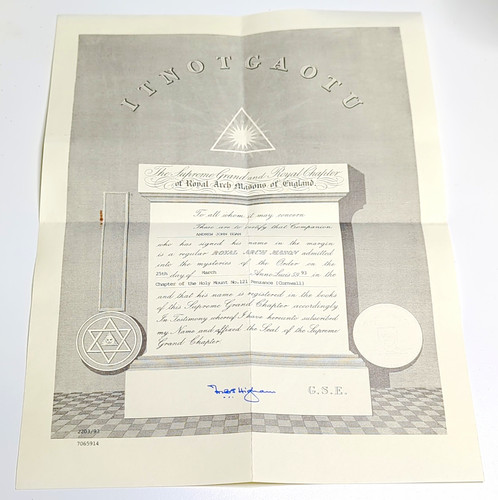 ITNOTGAOTU
The Supreme Grand and Royal Chapter
of Royal Arch Masons of England.
To all whom it may concern
These are to certify that Companion
ANDREW JOHN
who has signed his name in the margin
is a regular ROYAL ARCH MASON admitted
into the mysteries of the Order on the
25th day of March Anno Lucis 59 93 in the
Chapter of the Holy Mount No.121 Penzance (Cornwall)
and that his name is registered in the books
of this Supreme Grand Chapter accordingly
In Testimony whereof I have hereunto subscribed
my Name and affixed the Seal of the Supreme
Grand Chapter.
G.S.E.
2203/93
7065914